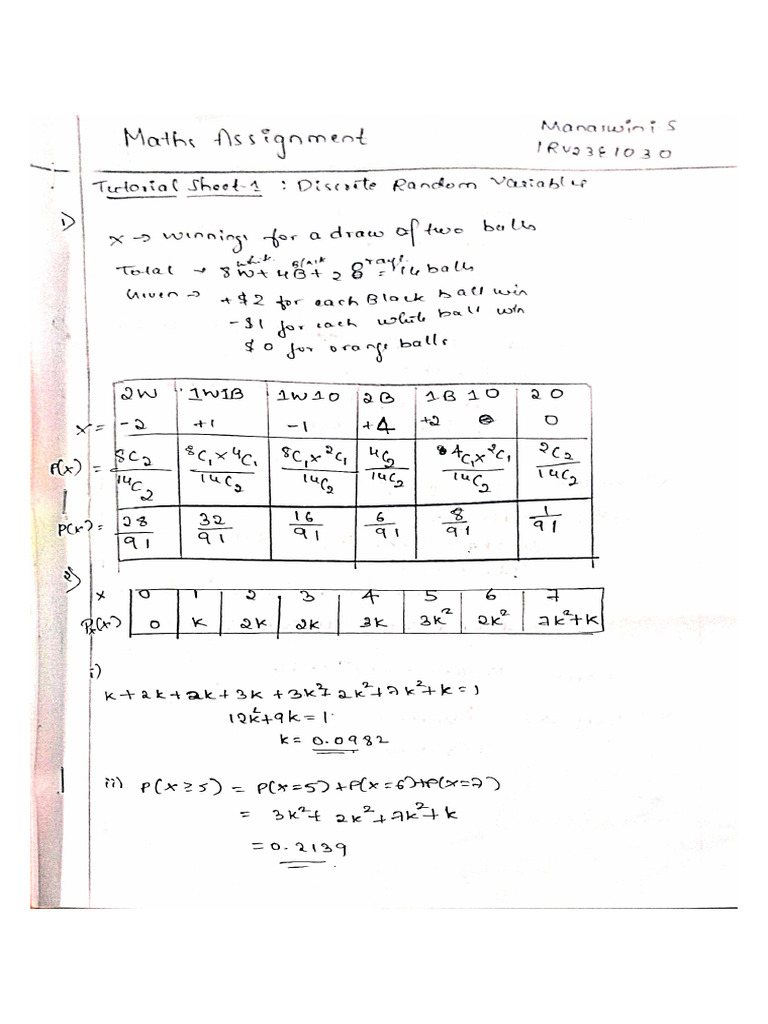 Maths Assignment
Manaswini S
1RV23EI030
Tutorial Sheet-1 : Discrete Random Variables
1)
X → winnings for a draw of two balls
Total → 8W + 4B + 2O = 14 balls
Given → +$2 for each Black ball win
-$1 for each white ball win
$0 for orange balls
2W 1W1B 1W1O 2B 1B1O 2O
X = -2 +1 -1 +4 +2 0
P(x) = 8C₂/14C₂ 8C₁×4C₁/14C₂ 8C₁×2C₁/14C₂ 4C₂/14C₂ 4C₁×2C₁/14C₂ 2C₂/14C₂
P(x) = 28/91 32/91 16/91 6/91 8/91 1/91
2)
x 0 1 2 3 4 5 6 7
Pₓ(x) 0 k 2k 2k 3k 3k² 2k² 7k²+k
i)
k+2k+2k+3k+3k²+2k²+7k²+k=1
12k²+9k=1
k=0.0982
ii) P(X≥5) = P(X=5)+P(X=6)+P(X=7)
= 3k²+ 2k²+7k²+k
=0.2139